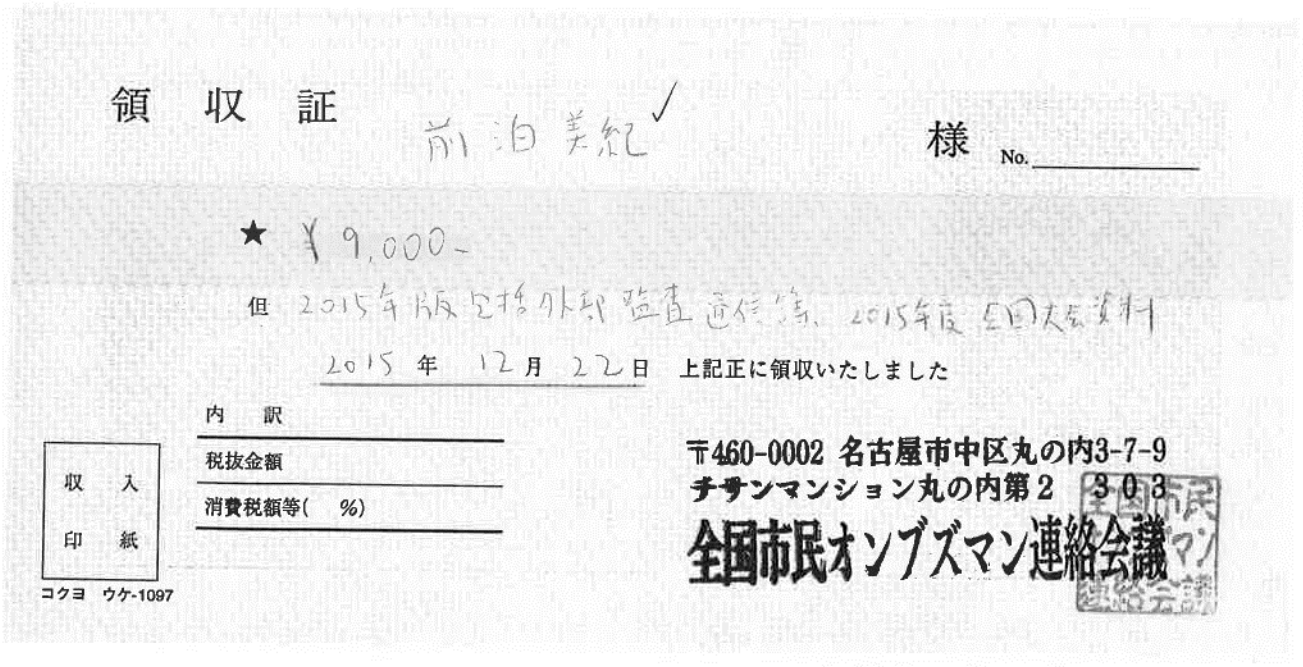 領収証 前泊美紀 様 No.
★ ¥9,000-
但 2015年版包括外部監査通信簿、2015年度全国大会資料
2015年12月22日 上記正に領収いたしました
内訳
税抜金額
消費税額等( %)
収入
印紙
コクヨ ウケ-1097
〒460-0002 名古屋市中区丸の内3-7-9
チサンマンション丸の内第2 303
全国市民オンブズマン連絡会議
全国市民
マン
連絡会議